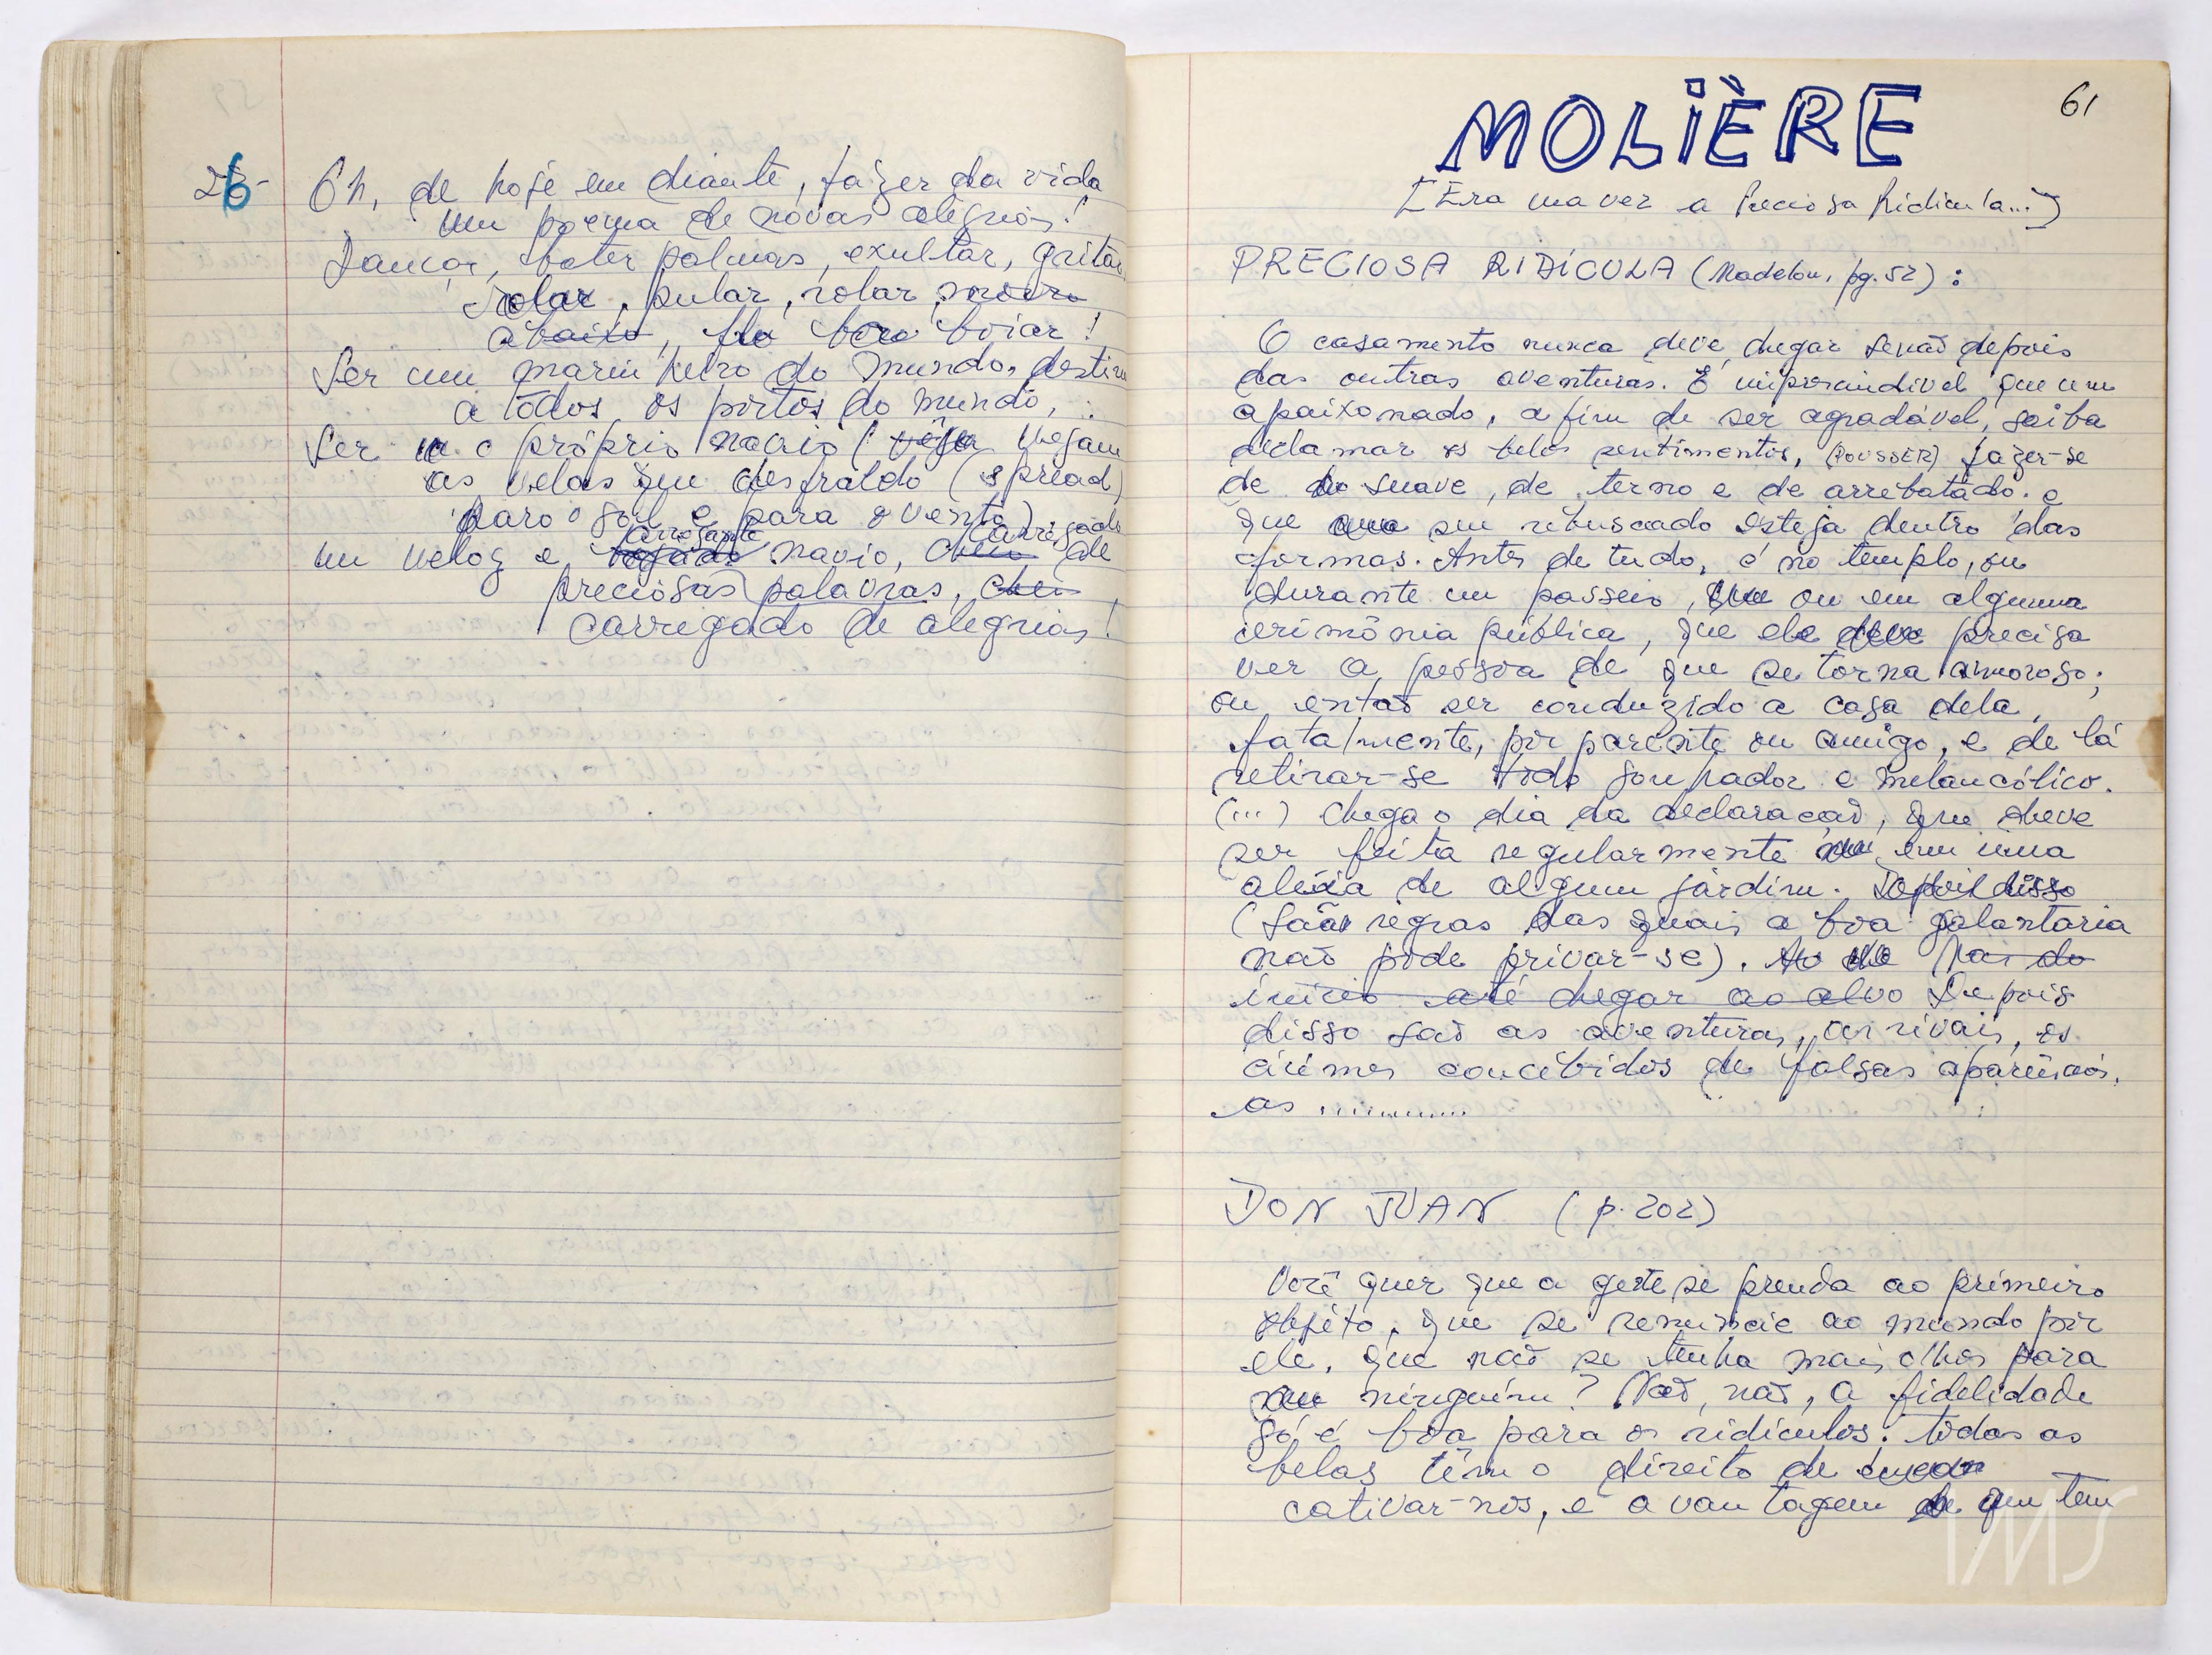 26-
Oh, de hoje em diante, fazer da vida
um poema de novas alegrias!
Dançar, bater palmas, exultar, gritar
rolar, pular, rolar
abaixo, boiar!
Ser um marinheiro do mundo, destin
a todos os portos do mundo,
Ser o próprio navio (vejam
as velas que desfraldo (spread)
para o sol e para o vento)
arrogante carregado
um veloz e navio, cheio de
preciosas palavras,
carregado de alegrias!
61
MOLIÈRE
[Era uma vez a Preciosa Ridícula...]
PRECIOSA RIDÍCULA (Madelon, pg. 52):
O casamento nunca deve chegar senão depois
das outras aventuras. É imprescindível que um
apaixonado, a fim de ser agradável, saiba
declamar os belos sentimentos, (POUSSER) fazer-se
de suave, de terno e de arrebatado. e
que seu rebuscado esteja dentro das
formas. Antes de tudo, é no templo, ou
durante um passeio, ou em alguma
cerimônia pública, que ele deve precisa
ver a pessoa de que se torna amoroso;
ou então ser conduzido a casa dela,
fatalmente, por parente ou amigo, e de lá
retirar-se todo sonhador e melancólico.
(...) Chega o dia da declaração, que deve
ser feita regularmente em uma
aleia de algum jardim. Depois disso
(são regras das quais a boa galanteria
não pode privar-se).
início até chegar ao alvo Depois
disso são as aventuras, os rivais, os
ciúmes concebidos de falsas aparências,
as ............
DON JUAN (p. 202)
Você quer que a gente se prenda ao primeiro
objeto, que se renuncie ao mundo por
ele, que não se tenha mais olhos para
ninguém? Não, não, a fidelidade
só é boa para os ridículos; todas as
belas têm o direito de
cativar-nos, e a vantagem de quem tem
IMS